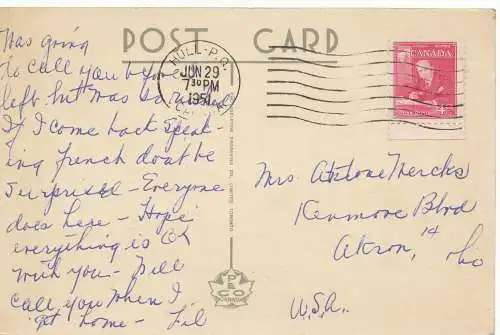 POST CARD
HULL-P.Q.
JUN 29
7 30 PM
1951
CANADA
4
Was going
to call you before I
left but was so rushed
If I come back speak-
ing french don't be
surprised - Everyone
does here - Hope
everything is OK
with you - Will
call you when I
get home -
P E
CO
CANADA
Mrs.
Kenmore Blvd
Akron, 14
Ohio
U.S.A.